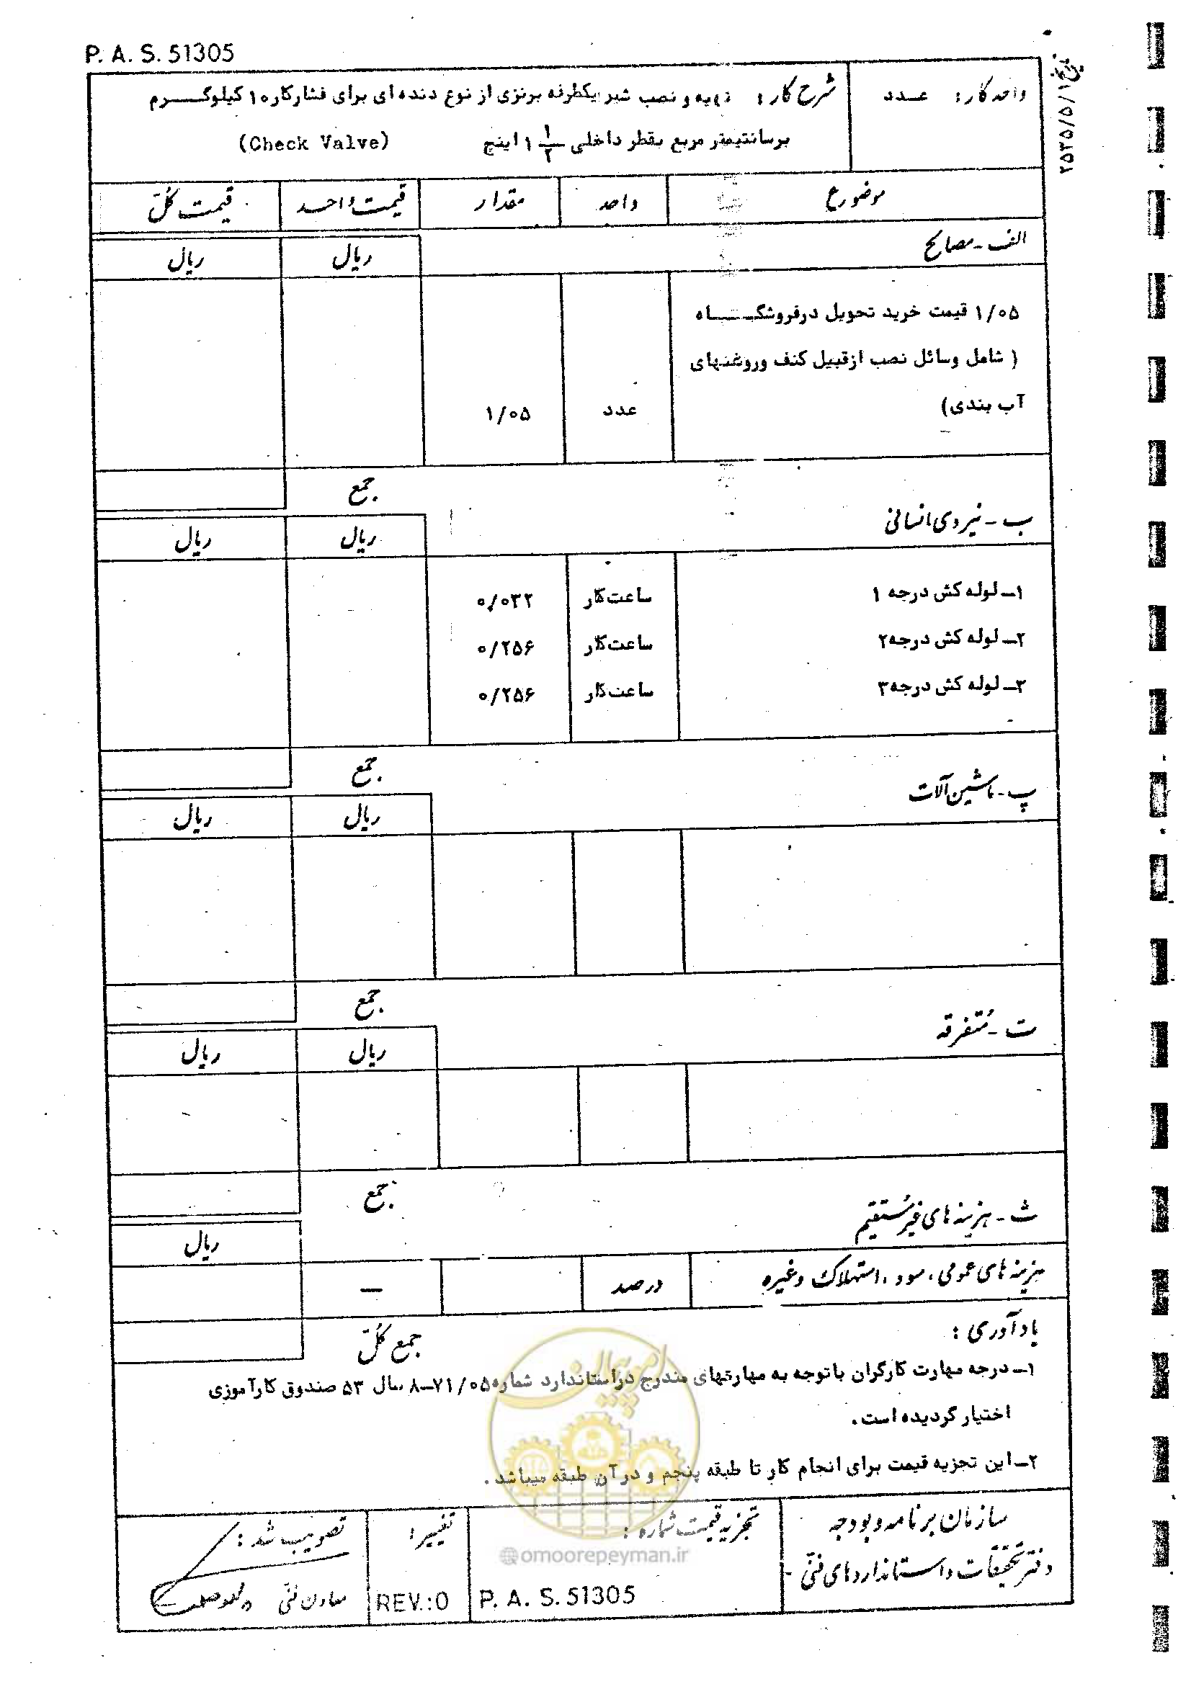 P. A. S. 51305
تاریخ ۲۵۳۵/۵/۱
واحد کار: عدد
شرح کار: تهیه و نصب شیر یکطرفه برنزی از نوع دنده ای برای فشارکار ۱۰ کیلوگرم
برسانتیمتر مربع بقطر داخلی ۱ ۱/۲ اینچ (Check Valve)
موضوع واحد مقدار قیمت واحد قیمت کلّ
الف - مصالح ریال ریال
۱/۰۵ قیمت خرید تحویل درفروشگاه
( شامل وسائل نصب ازقبیل کنف وروغنهای
آب بندی) عدد ۱/۰۵
جمع
ب - نیروی انسانی ریال ریال
۱ـ لوله کش درجه ۱ ساعت کار ۰/۰۳۲
۲ـ لوله کش درجه ۲ ساعت کار ۰/۲۵۶
۳ـ لوله کش درجه ۳ ساعت کار ۰/۲۵۶
جمع
پ - ماشین آلات ریال ریال
جمع
ت - مُتفرقه ریال ریال
جمع
ث - هزینه های غیرمُستقیم ریال
هزینه های عمومی، سود، استهلاک وغیره درصد —
یادآوری : جمع کلّ
۱ـ درجه مهارت کارگران باتوجه به مهارتهای مندرج دراستاندارد شماره ۷۱/۰۵ـ۸ سال ۵۳ صندوق کارآموزی
اختیار گردیده است.
۲ـ این تجزیه قیمت برای انجام کار تا طبقه پنجم و درآن طبقه میباشد.
امور پیمان
@omoorepeyman.ir
سازمان برنامه وبودجه
دفتر تحقیقات واستانداردهای فنّی
تجزیه قیمت شماره :
P. A. S. 51305
تغییر:
REV.:0
تصویب شد :
معاون فنّی